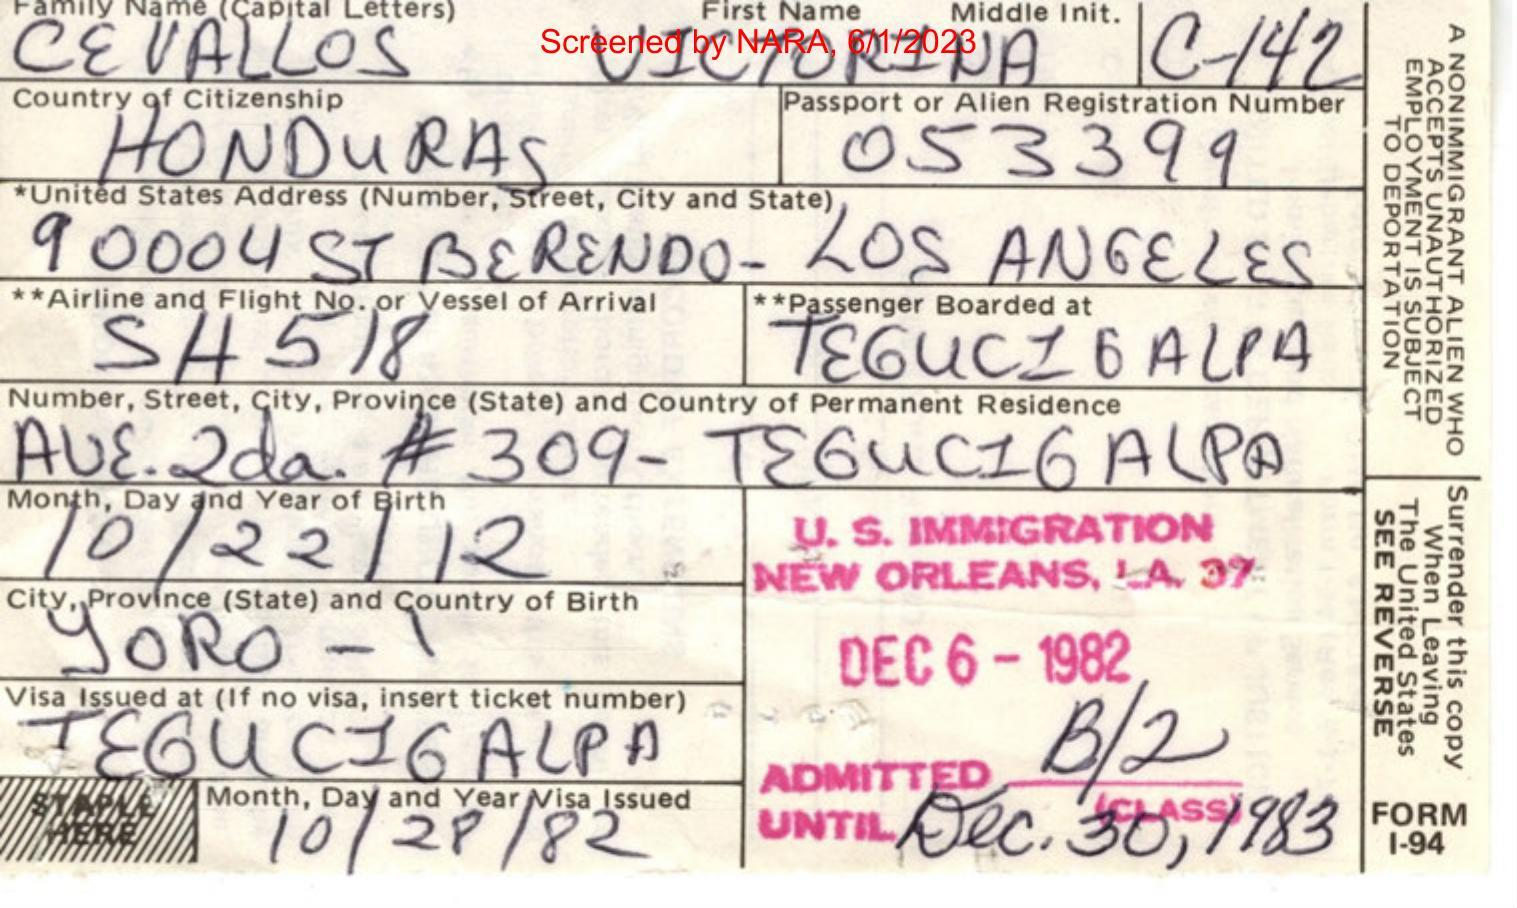 Family Name (Capital Letters) First Name Middle Init.
Screened by NARA, 6/1/2023
CEVALLOS VICTORINA C-142
Country of Citizenship Passport or Alien Registration Number
HONDURAS 053399
*United States Address (Number, Street, City and State)
90004 ST BERENDO- LOS ANGELES
**Airline and Flight No. or Vessel of Arrival **Passenger Boarded at
SH 518 TEGUCIGALPA
Number, Street, City, Province (State) and Country of Permanent Residence
AVE. 2da. # 309- TEGUCIGALPA
Month, Day and Year of Birth
10/22/12
City, Province (State) and Country of Birth
YORO -
Visa Issued at (If no visa, insert ticket number)
TEGUCIGALPA
STAPLE
HERE
Month, Day and Year Visa Issued
10/28/82
U. S. IMMIGRATION
NEW ORLEANS, LA. 37
DEC 6 - 1982
ADMITTED B/2
(CLASS)
UNTIL Dec. 30, 1983
A NONIMMIGRANT ALIEN WHO
ACCEPTS UNAUTHORIZED
EMPLOYMENT IS SUBJECT
TO DEPORTATION
Surrender this copy
When Leaving
The United States
SEE REVERSE
FORM
I-94